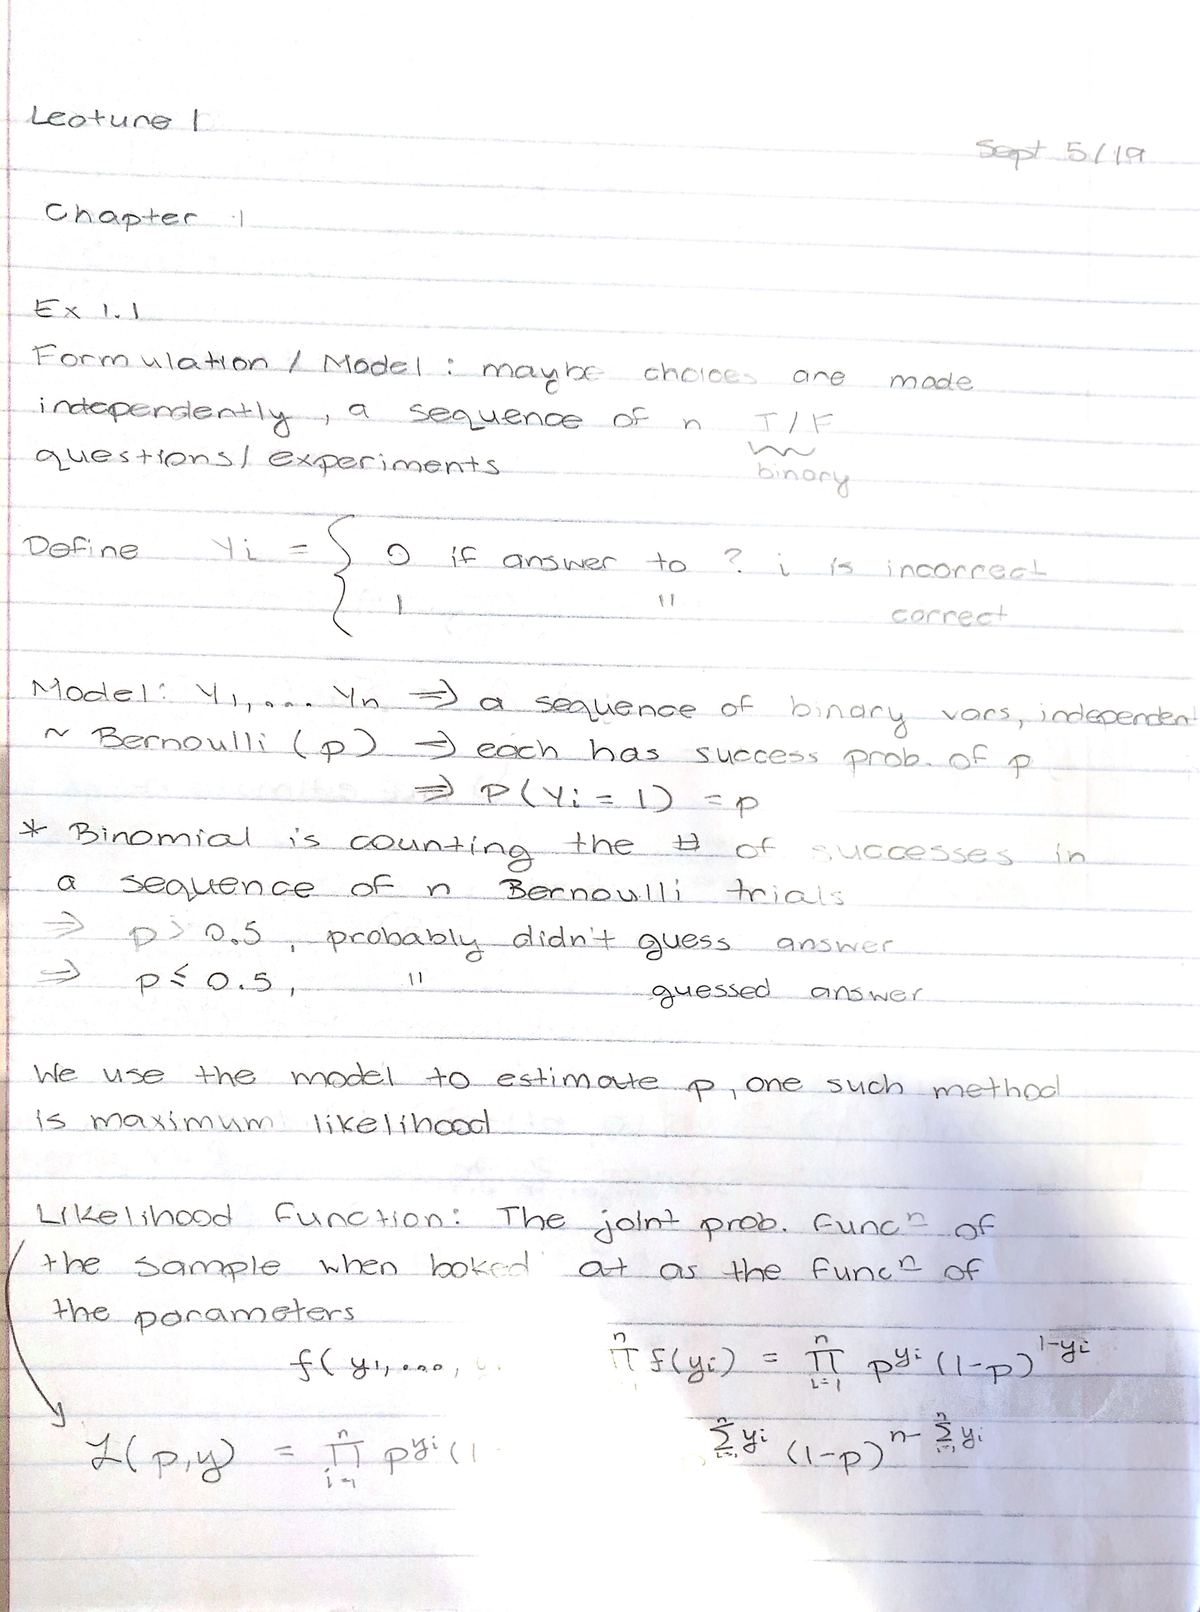 Lecture 1
Sept 5/19
Chapter 1
Ex 1.1
Formulation / Model : maybe choices are made
independently, a sequence of n T/F
questions/ experiments binary
Define Yi = { 0 if answer to ? i is incorrect
1 " correct
Model: Y1,... Yn ⇒ a sequence of binary vars, independent
~ Bernoulli (p) ⇒ each has success prob. of p
⇒ P(Yi = 1) = p
* Binomial is counting the # of successes in
a sequence of n Bernoulli trials
⇒ p > 0.5, probably didn't guess answer
⇒ p ≤ 0.5, " guessed answer
We use the model to estimate p, one such method
is maximum likelihood
Likelihood function: The joint prob. funcⁿ of
the sample when looked at as the funcⁿ of
the parameters
f(y1,..., ∏ⁿ f(yi) = ∏ⁿ i=1 p^yi (1-p)^1-yi
L(p,y) = ∏ⁿ i=1 p^yi (1 Σⁿ i=1 yi (1-p)^n- Σⁿ i=1 yi